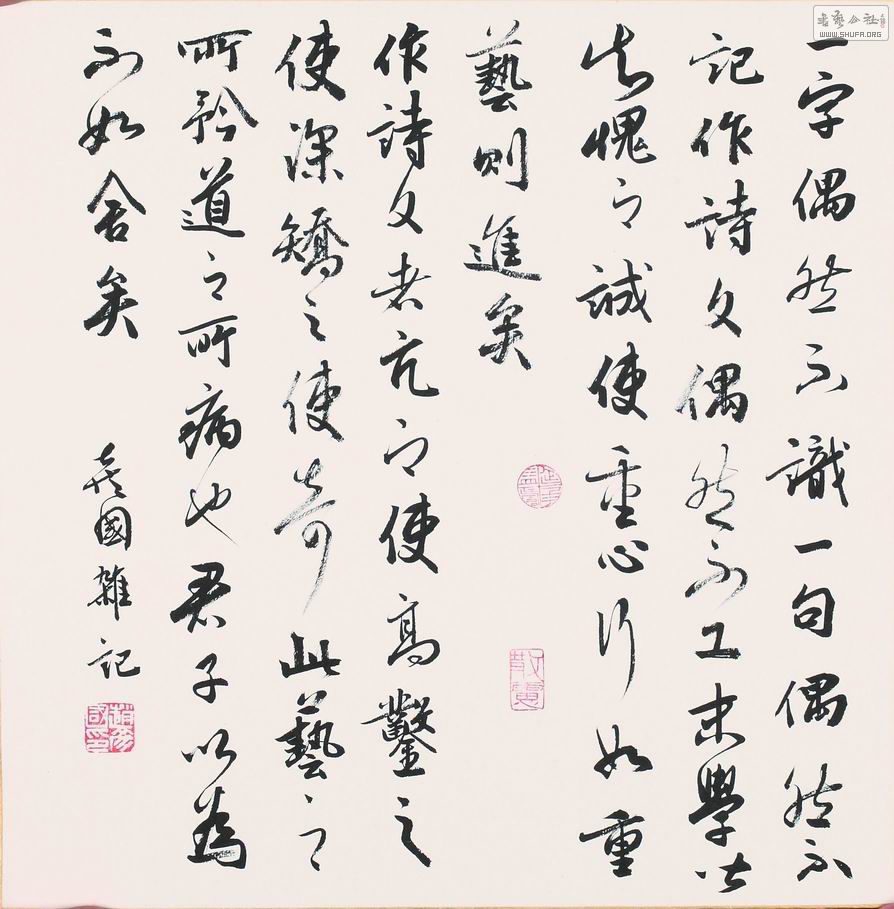 一字偶然不識一句偶然不
記作詩文偶然不工末學皆
知愧之誠使重心行如重
藝則進矣
作詩文者亢之使高鑿之
使深矯之使奇此藝之
所矜道之所病也君子以為
不如舍矣
彥國雜記
書藝公社
WWW.SHUFA.ORG